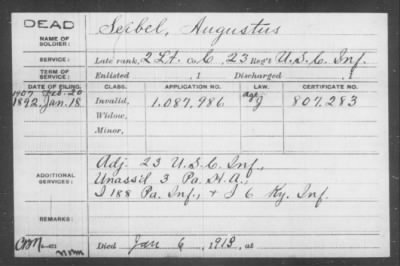 DEAD
NAME OF SOLDIER: Seibel, Augustus
SERVICE: Late rank, 2 Lt. Co. C, 23 Reg't U.S.C. Inf.
TERM OF SERVICE: Enlisted , 1 Discharged , 1
DATE OF FILING. CLASS. APPLICATION NO. LAW. CERTIFICATE NO.
1907 Feb. 20
1892, Jan. 18 Invalid, 1.087.986 age J 807.283
Widow,
Minor,
ADDITIONAL SERVICES:
Adj. 23 U.S.C. Inf.,
Unassil 3 Pa. H.A.,
I 188 Pa. Inf., + I 6 Ky. Inf.
REMARKS:
Died Jan 6, 1913, at